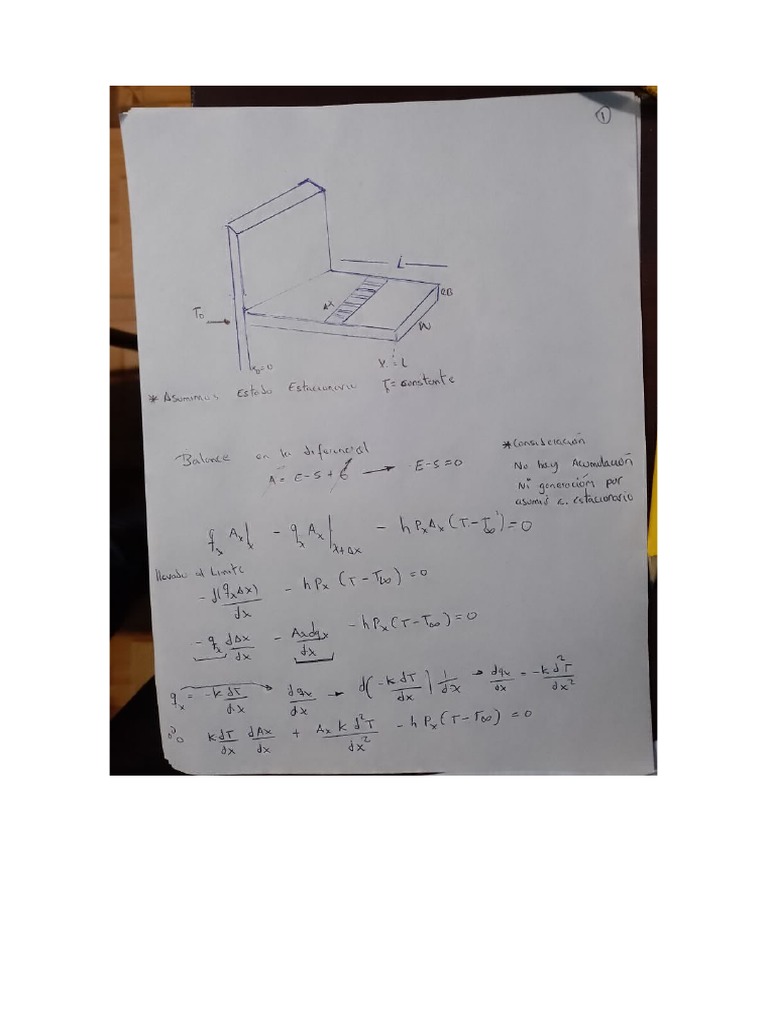 1
L
Δx
2B
W
T₀
x=0
x=L
* Asumimos Estado Estacionario T₀=constante
Balance en la diferencial
A = E-S+G → E-S=0
* Consideración
No hay Acumulación
Ni generación por
asumir e. estacionario
qₓ Aₓ|ₓ - qₓ Aₓ|ₓ₊Δₓ - h PₓΔₓ (T-T∞) = 0
llevado al Limite
-d(qₓAₓ)/dx - hPₓ (T-T∞) = 0
-qₓ dAₓ/dx - Aₓdqₓ/dx - hPₓ(T-T∞) = 0
qₓ = -k dT/dx dqₓ/dx → d(-k dT/dx) 1/dx → dqₓ/dx = -k d²T/dx²
∴ k dT/dx dAₓ/dx + Aₓ k d²T/dx² - h Pₓ(T-T∞) = 0